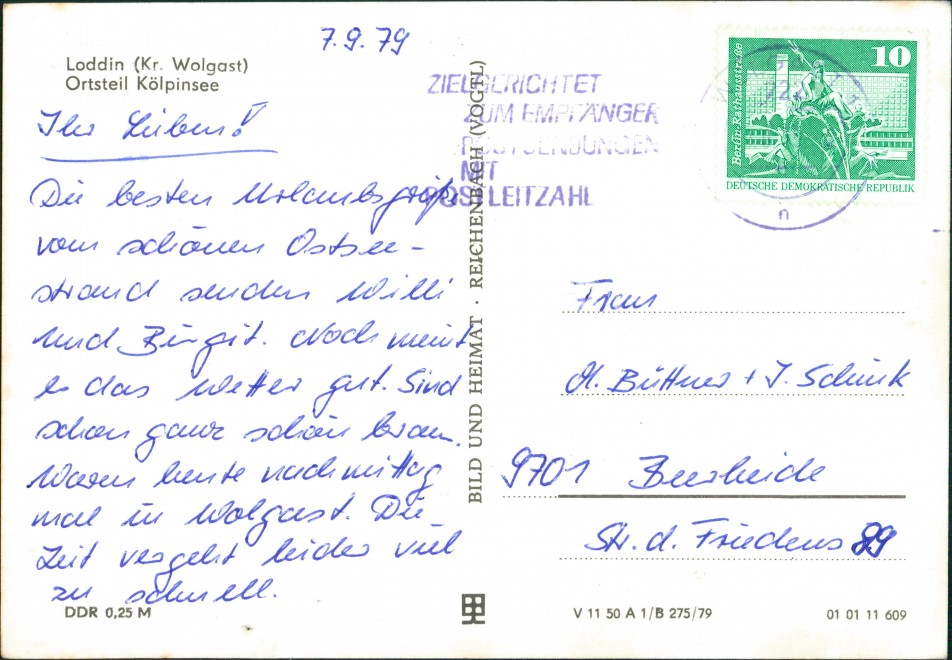 7.9.79
Loddin (Kr. Wolgast)
Ortsteil Kölpinsee
Ihr Lieben!
Die besten Urlaubsgrüße
vom schönen Ostsee-
strand senden Willi
und Birgit. Noch meint
es das Wetter gut. Sind
schon ganz schön braun.
Waren heute nachmittag
mal in Wolgast. Die
Zeit vergeht leider viel
zu schnell.
DDR 0,25 M
BILD UND HEIMAT · REICHENBACH (VOGTL)
ZIELGERICHTET
ZUM EMPFÄNGER
POSTSENDUNGEN
MIT
POSTLEITZAHL
10
Berlin: Rathausstraße
DEUTSCHE DEMOKRATISCHE REPUBLIK
n
Frau
M. Büttner + J. Schink
9701 Beerheide
Str. d. Friedens 89
V 11 50 A 1/B 275/79
01 01 11 609